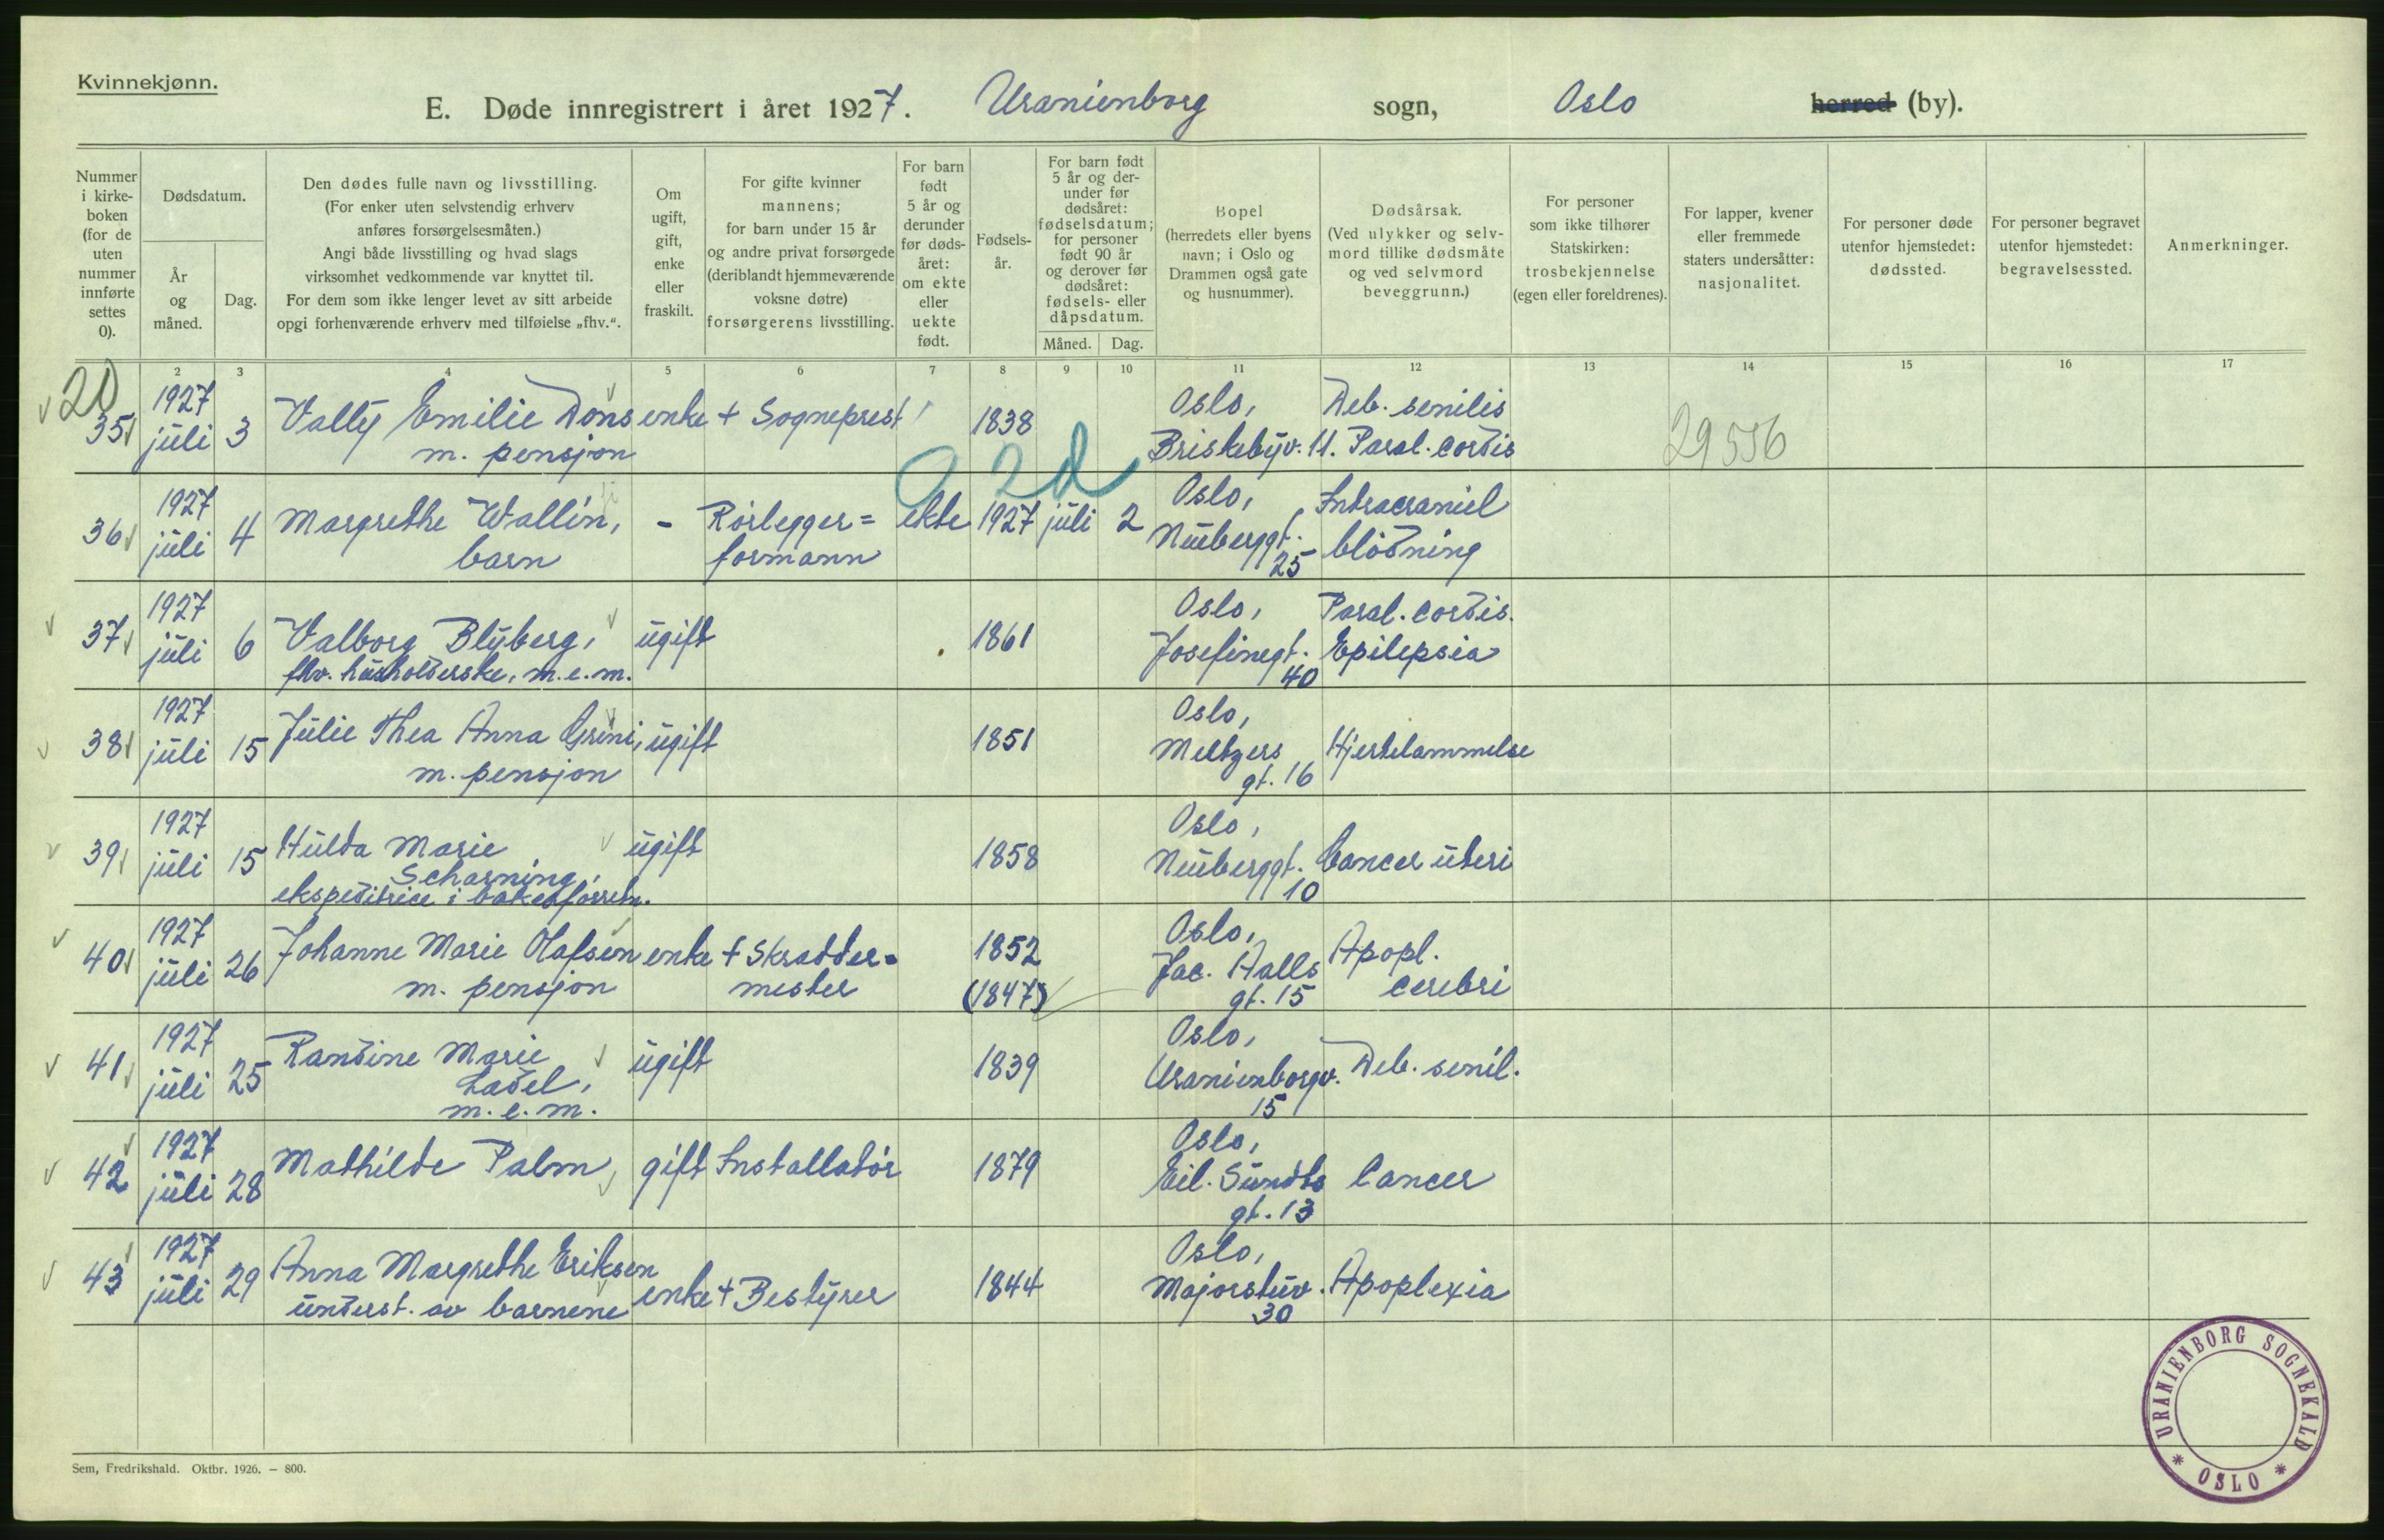 Kvinnekjønn.
E. Døde innregistrert i året 1927. Uranienborg sogn, Oslo herred (by).
Nummer
i kirke-
boken
(for de
uten
nummer
innførte
settes
0).
Dødsdatum.
År
og
måned.
Dag.
Den dødes fulle navn og livsstilling.
(For enker uten selvstendig erhverv
anføres forsørgelsesmåten.)
Angi både livsstilling og hvad slags
virksomhet vedkommende var knyttet til.
For dem som ikke lenger levet av sitt arbeide
opgi forhenværende erhverv med tilføielse „fhv.“.
Om
ugift,
gift,
enke
eller
fraskilt.
For gifte kvinner
mannens;
for barn under 15 år
og andre privat forsørgede
(deriblandt hjemmeværende
voksne døtre)
forsørgerens livsstilling.
For barn
født
5 år og
derunder
før døds-
året:
om ekte
eller
uekte
født.
Fødsels-
år.
For barn født
5 år og der-
under før
dødsåret:
fødselsdatum;
for personer
født 90 år
og derover før
dødsåret:
fødsels- eller
dåpsdatum.
Måned. Dag.
Bopel
(herredets eller byens
navn; i Oslo og
Drammen også gate
og husnummer).
Dødsårsak.
(Ved ulykker og selv-
mord tillike dødsmåte
og ved selvmord
beveggrunn.)
For personer
som ikke tilhører
Statskirken:
trosbekjennelse
(egen eller foreldrenes).
For lapper, kvener
eller fremmede
staters undersåtter:
nasjonalitet.
For personer døde
utenfor hjemstedet:
dødssted.
For personer begravet
utenfor hjemstedet:
begravelsessted.
Anmerkninger.
2 3 4 5 6 7 8 9 10 11 12 13 14 15 16 17
20
1927 Oslo, Deb. senilis
35 juli 3 Vally Emilie Dons enke + Sogneprest 1838 29556
m. pensjon Briskebyv. 11. Paral. cordis
2d
1927 Oslo, Intracraniel
36 juli 4 Margrethe Wallin, - Rørlegger= ekte 1927 juli 2 Nuberggt.
barn formann 25 blødning
1927 Oslo, Paral. cordis.
37 juli 6 Valborg Blyberg, ugift 1861 Josefinegt. Epilepsia
fhv. husholderske, m.e.m. 40
1927 Oslo,
38 juli 15 Julie Thea Anna Grini, ugift 1851 Meltzers Hjertelammelse
m. pensjon gt. 16
1927 Oslo,
39 juli 15 Hulda Marie ugift 1858 Nuberggt. Cancer uteri
Scharning, 10
ekspeditrice i bakerforretn.
1927 Oslo,
40 juli 26 Johanne Marie Olafsen enke + Skrædder= 1852 Jac. Aalls Apopl.
m. pensjon mester (1847) gt. 15 cerebri
1927 Oslo,
41 juli 25 Randine Marie ugift 1839 Uranienborgv. Deb. senil.
Ladel, 15
m.e.m.
1927 Oslo,
42 juli 28 Mathilde Palm, gift Installatør 1879 Eil. Sundts Cancer
gt. 13
1927 Oslo,
43 juli 29 Anna Margrethe Eriksen enke + Bestyrer 1844 Majorstuv. Apoplexia
underst. av barnene 30
Sem, Fredrikshald. Oktbr. 1926. — 800.
URANIENBORG SOGNEKALD
* OSLO *